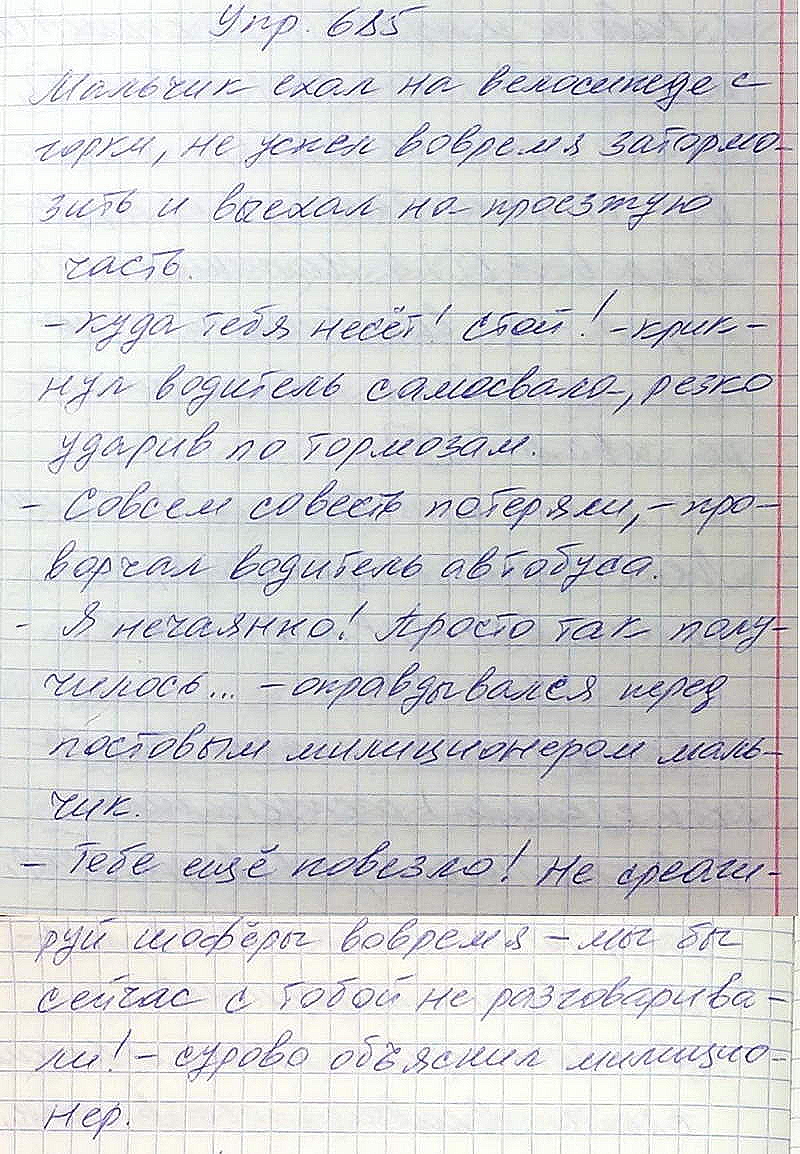 Упр. 685
Мальчик ехал на велосипеде с
горки, не успел вовремя затормо-
зить и выехал на проезжую
часть.
- Куда тебя несёт! Стой! - крик-
нул водитель самосвала, резко
ударив по тормозам.
- Совсем совесть потеряли, - про-
ворчал водитель автобуса.
- Я нечаянно! Просто так полу-
чилось... - оправдывался перед
постовым милиционером маль-
чик.
- Тебе ещё повезло! Не среаги-
руй шофёры вовремя - мы бы
сейчас с тобой не разговарива-
ли! - сурово объяснил милицио-
нер.